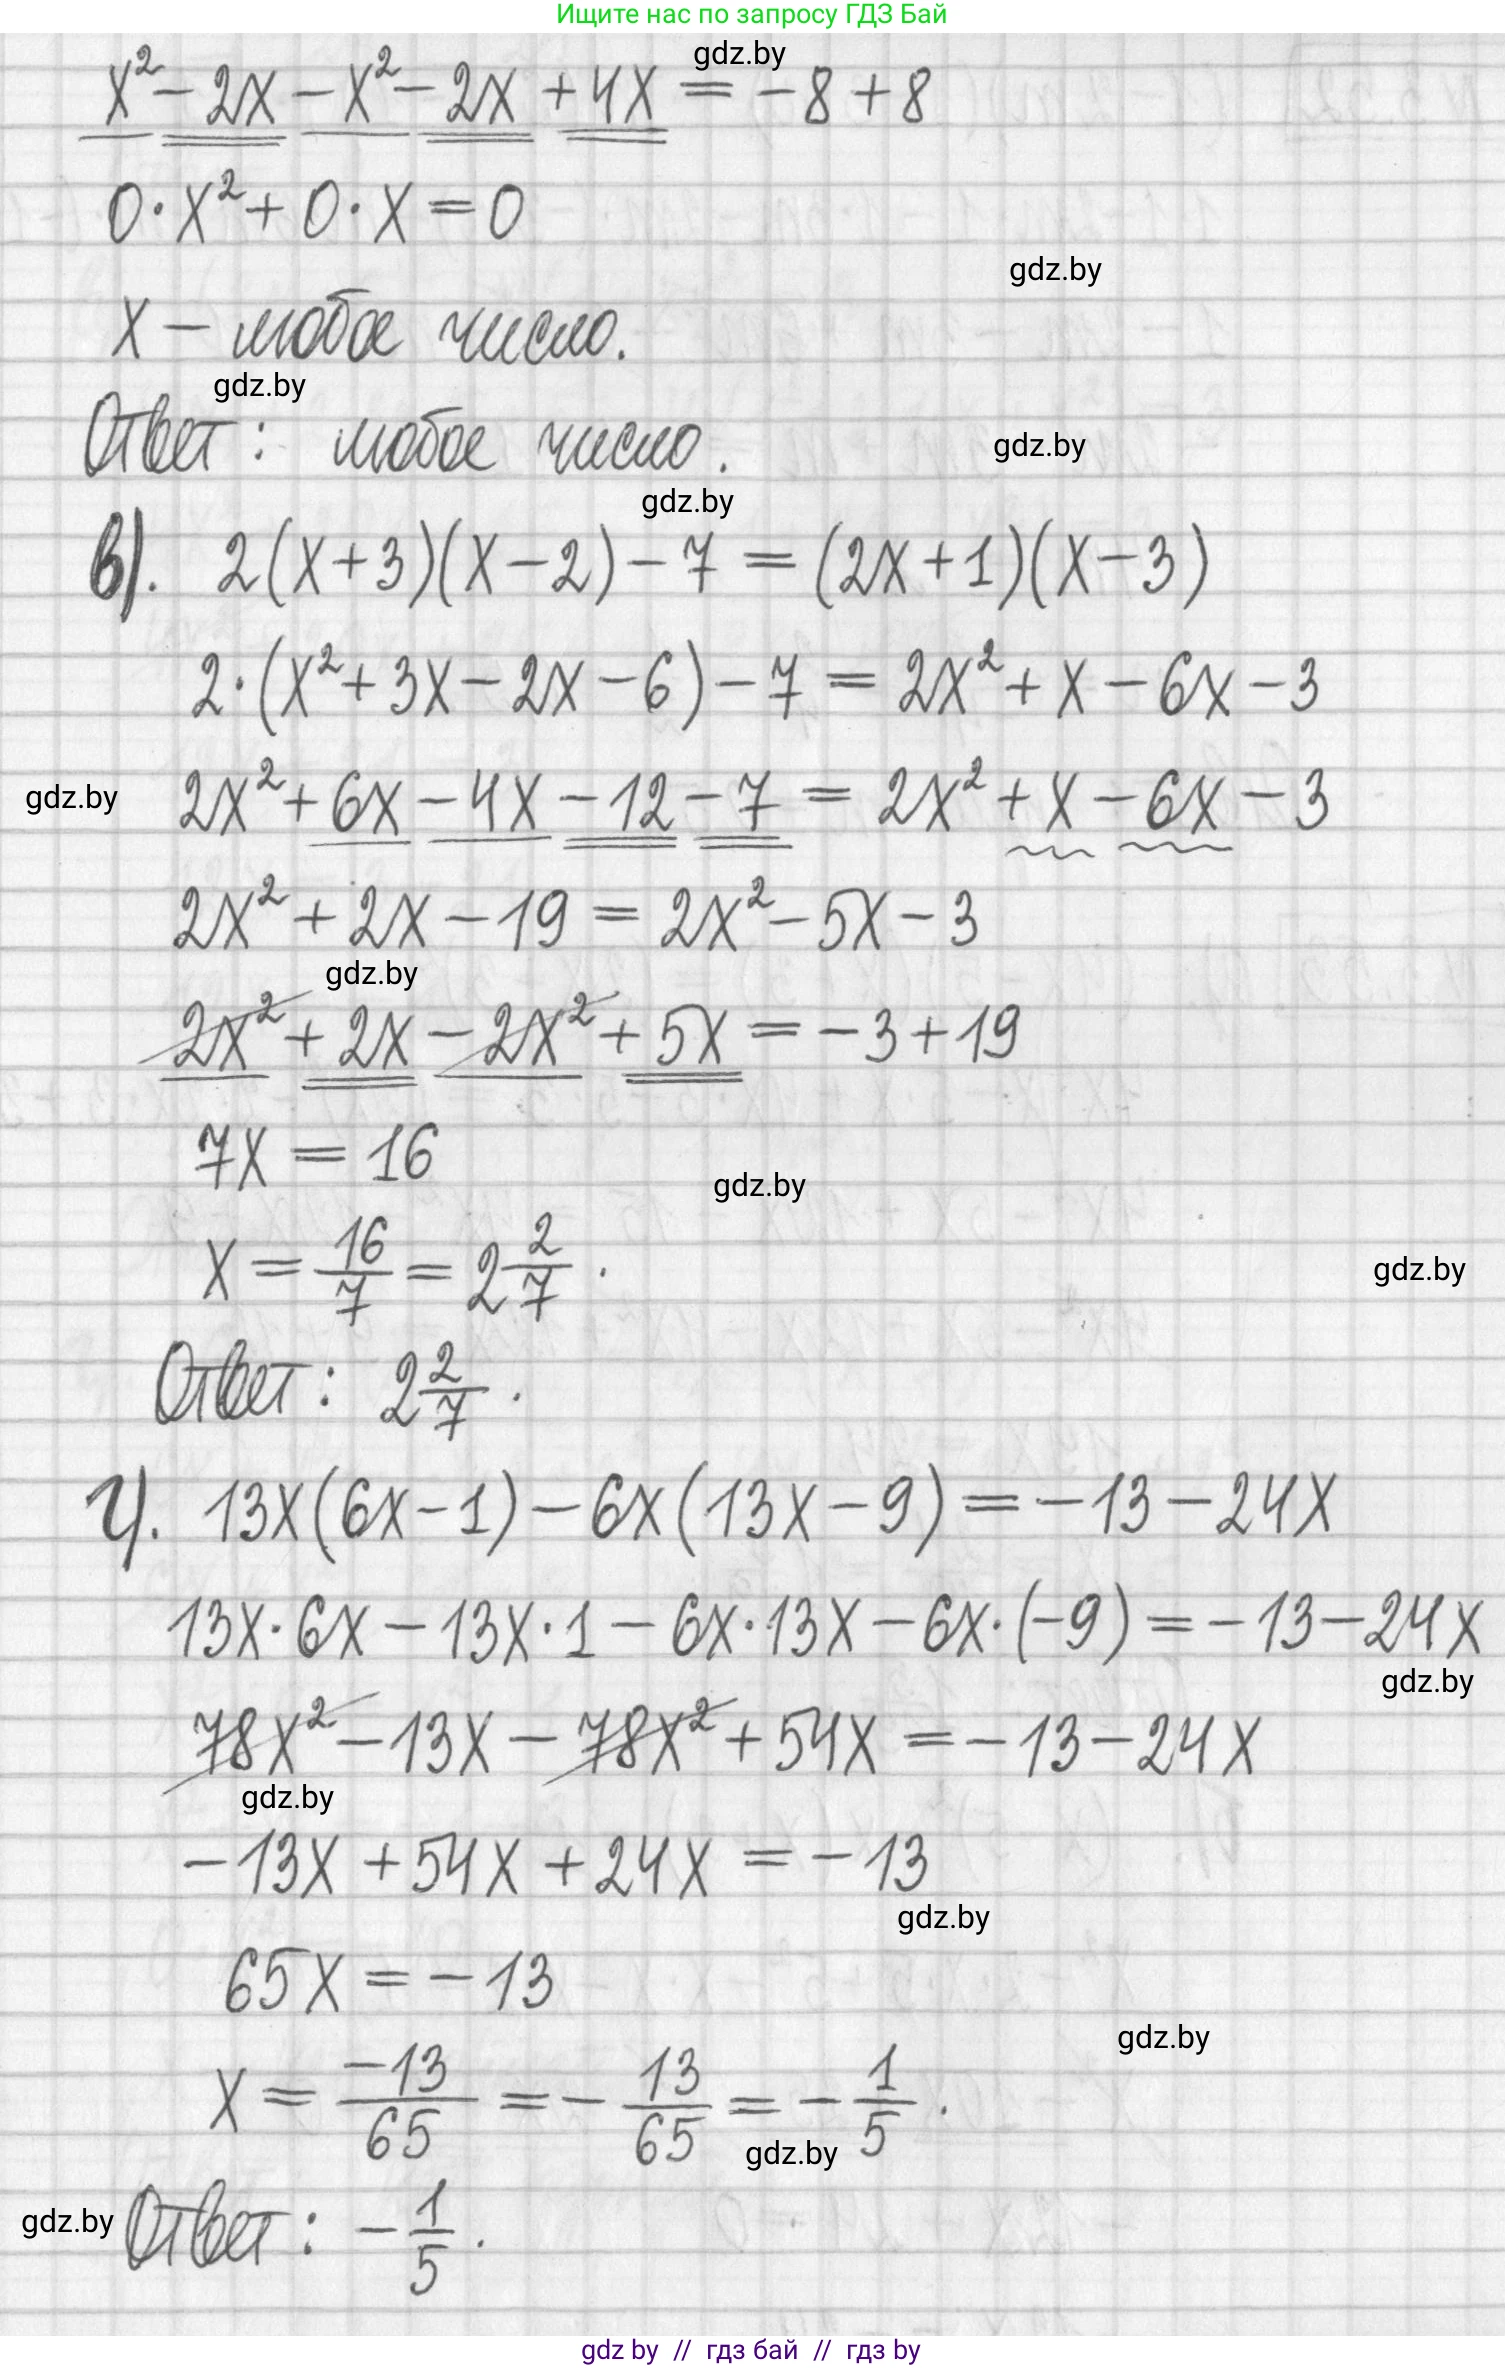 Ищите нас по запросу ГДЗ Бай
gdz.by
x² − 2x − x² − 2x + 4x = −8 + 8
0·x² + 0·x = 0
gdz.by
x − любое число.
gdz.by
Ответ: любое число.
gdz.by
gdz.by
в). 2(x+3)(x−2)−7 = (2x+1)(x−3)
2·(x²+3x−2x−6)−7 = 2x²+x−6x−3
gdz.by
2x²+6x−4x−12−7 = 2x²+x−6x−3
2x²+2x−19 = 2x²−5x−3
gdz.by
2x²+2x−2x²+5x = −3+19
7x = 16
gdz.by
x = 16/7 = 2 2/7.
gdz.by
Ответ: 2 2/7.
г). 13x(6x−1)−6x(13x−9) = −13−24x
13x·6x−13x·1−6x·13x−6x·(−9) = −13−24x
gdz.by
78x²−13x−78x²+54x = −13−24x
gdz.by
−13x+54x+24x = −13
gdz.by
65x = −13
gdz.by
x = −13/65 = −13/65 = −1/5.
gdz.by
gdz.by
Ответ: −1/5.
gdz by // гдз бай // гдз by